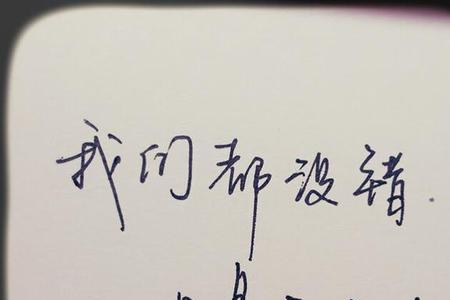 我们都没错.